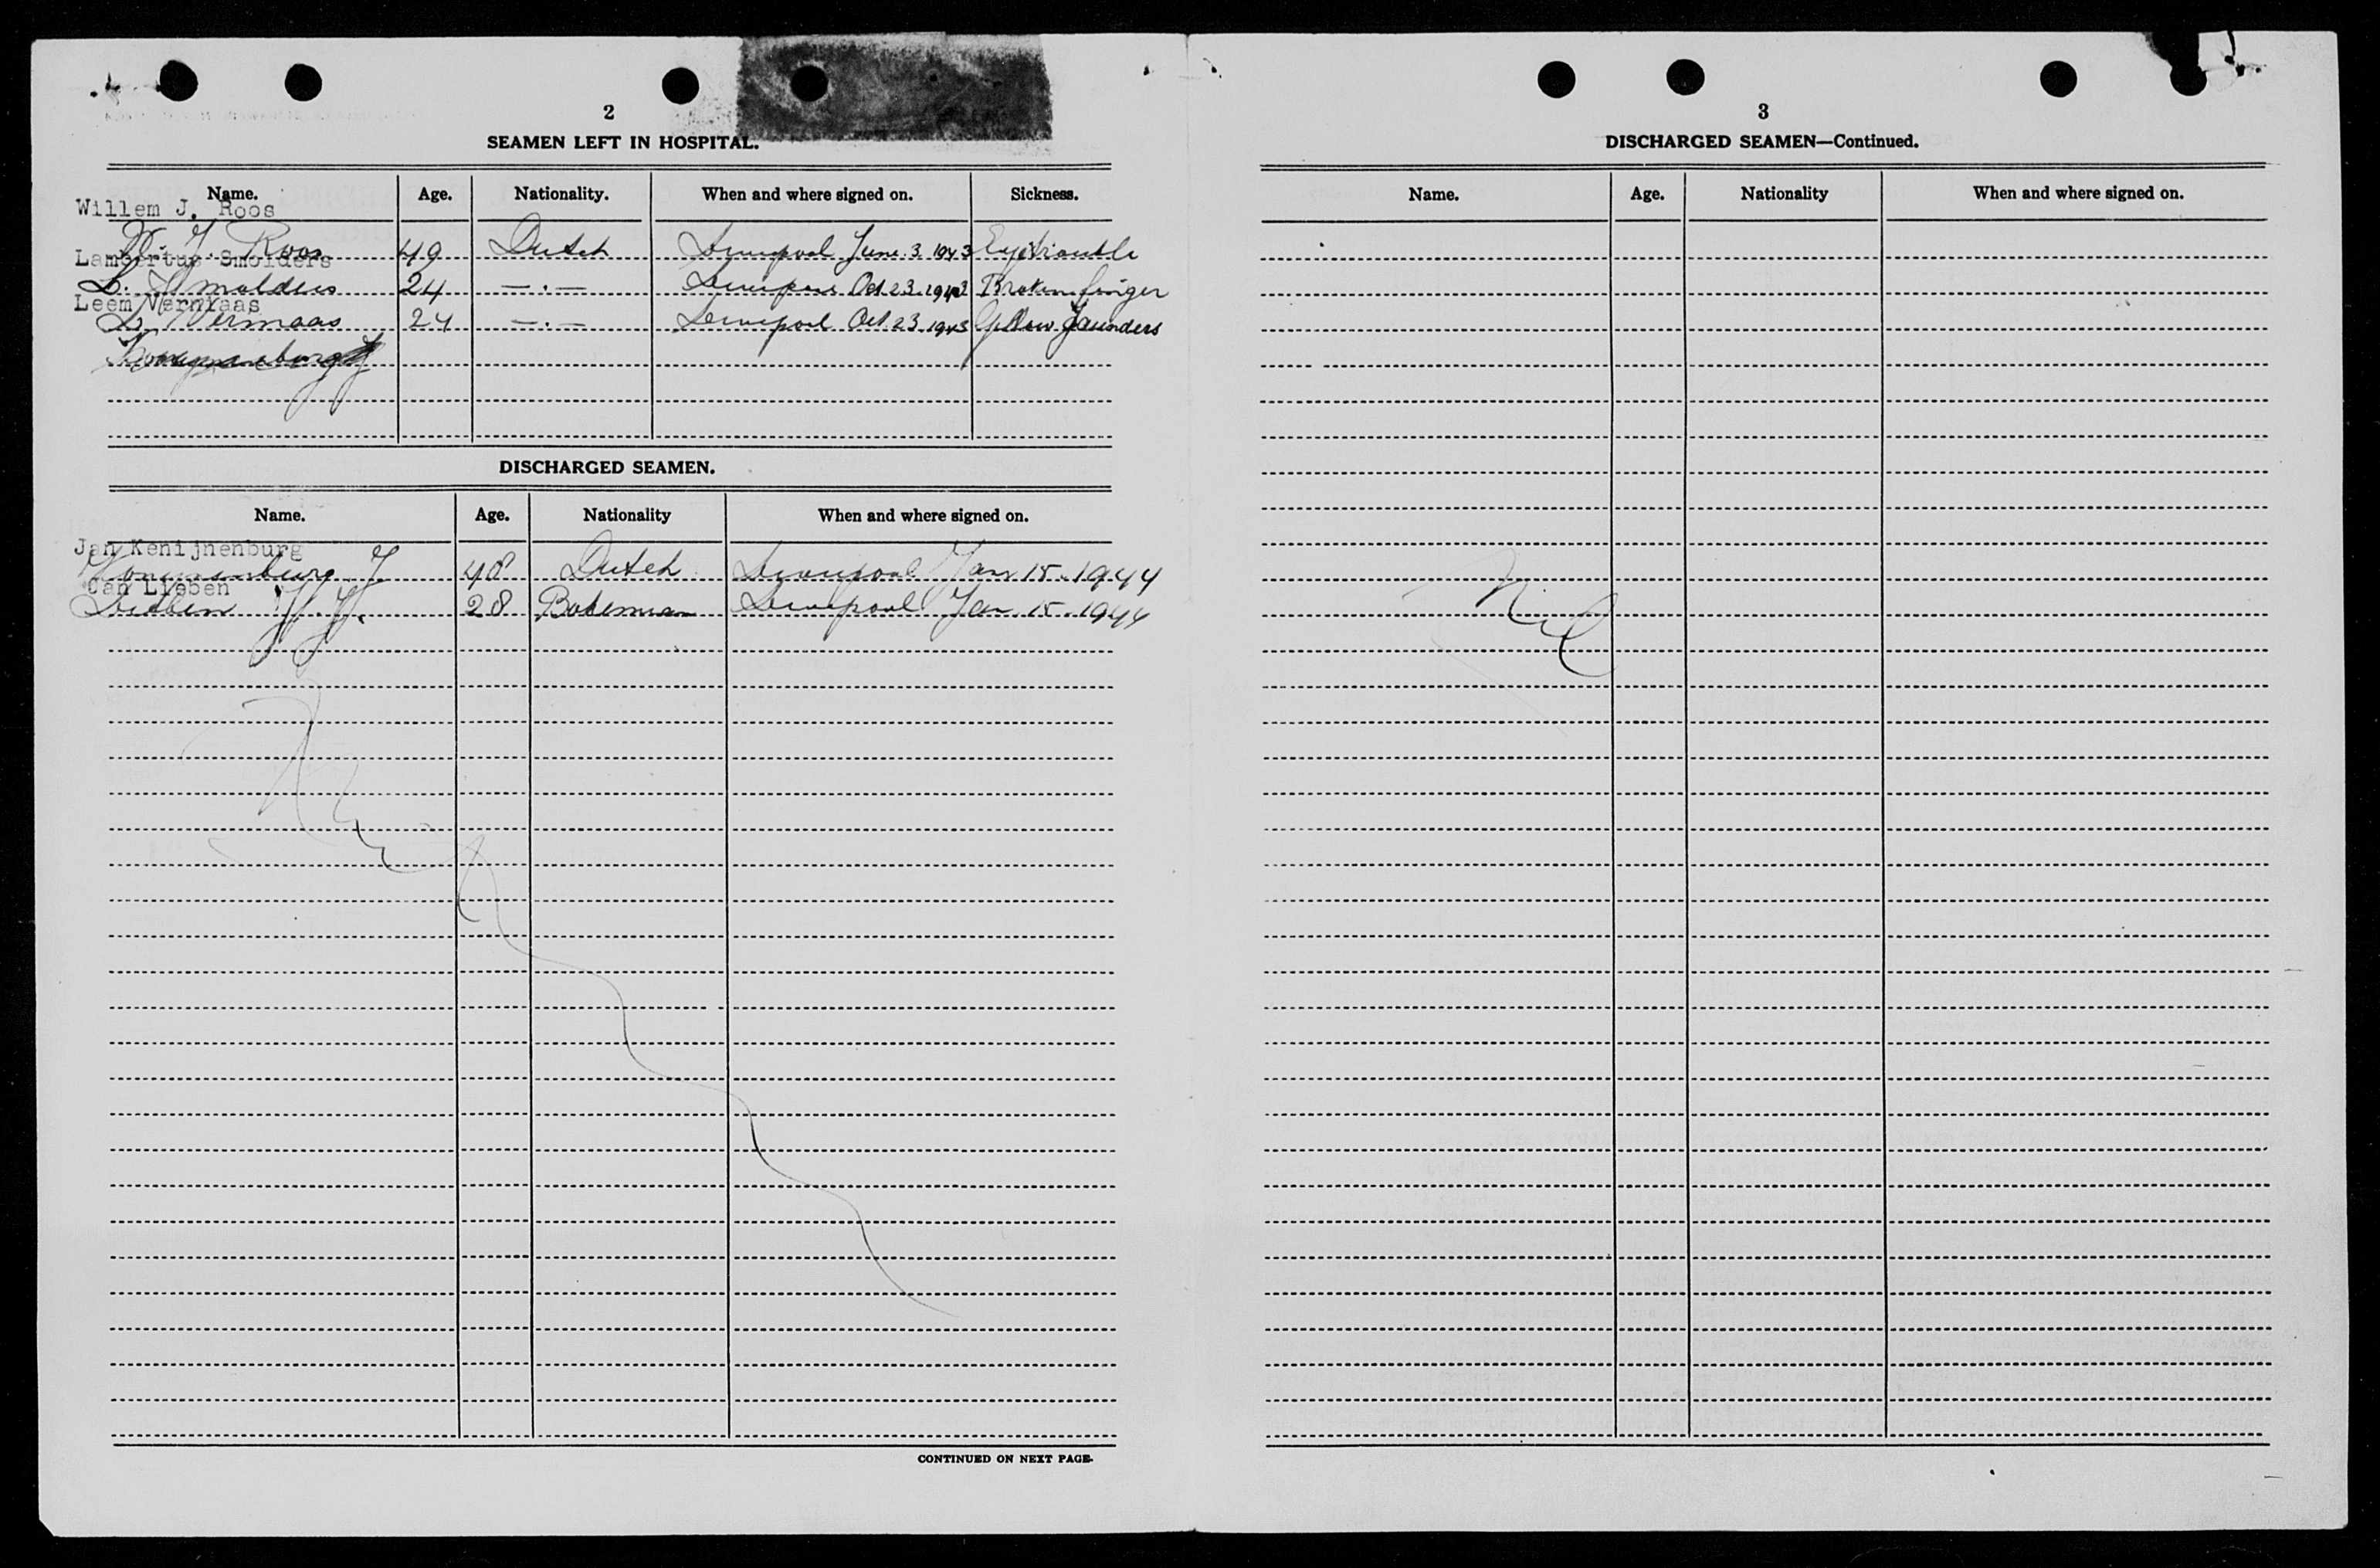 2
SEAMEN LEFT IN HOSPITAL.
Name. Age. Nationality. When and where signed on. Sickness.
Willem J. Roos
W. J. Roos 49 Dutch Liverpool June 3 1943 Eye trouble
Lambertus Smolders
L. Smolders 24 —.— Liverpool Oct 23 1943 Broken finger
Leem Vermaas
L. Vermaas 24 —.— Liverpool Oct 23 1943 Yellow Jaunders
DISCHARGED SEAMEN.
Name. Age. Nationality When and where signed on.
Jan Kenijnenburg
J. 48 Dutch Liverpool Jan 15. 1944
Can Lieben
Lieben 28 Bohemian Liverpool Jan. 15. 1944
Nil
CONTINUED ON NEXT PAGE.
3
DISCHARGED SEAMEN—Continued.
Name. Age. Nationality When and where signed on.
Nil